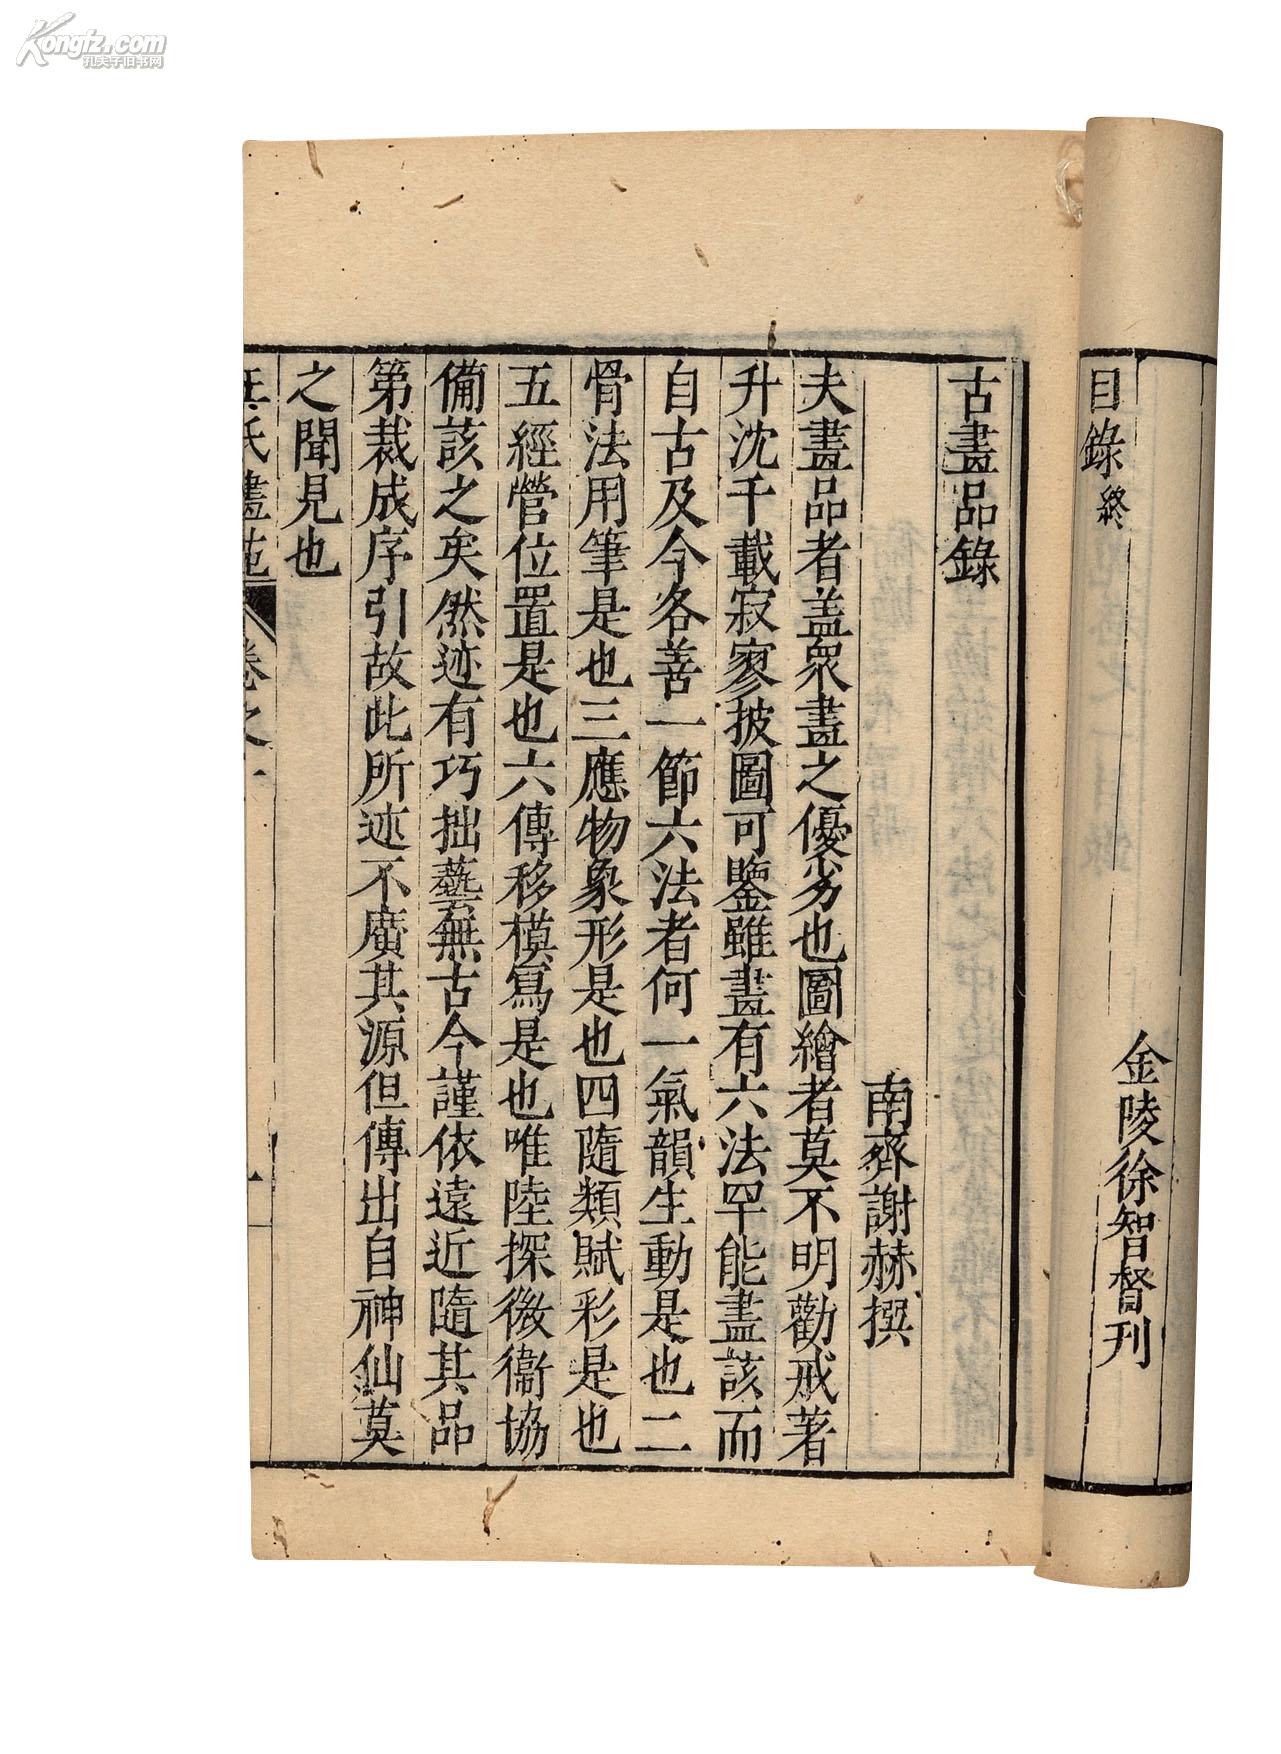 Kongfz.com
孔夫子旧书网
目錄終
金陵徐智督刊
古畫品錄
南齊謝赫撰
夫畫品者盖衆畫之優劣也圖繪者莫不明勸戒著
升沈千載寂寥披圖可鑒雖畫有六法罕能盡該而
自古及今各善一節六法者何一氣韻生動是也二
骨法用筆是也三應物象形是也四隨類賦彩是也
五經營位置是也六傳移模寫是也唯陸探微衞協
備該之矣然迹有巧拙藝無古今謹依遠近隨其品
第裁成序引故此所述不廣其源但傳出自神仙莫
之聞見也
王氏畫苑 卷之一